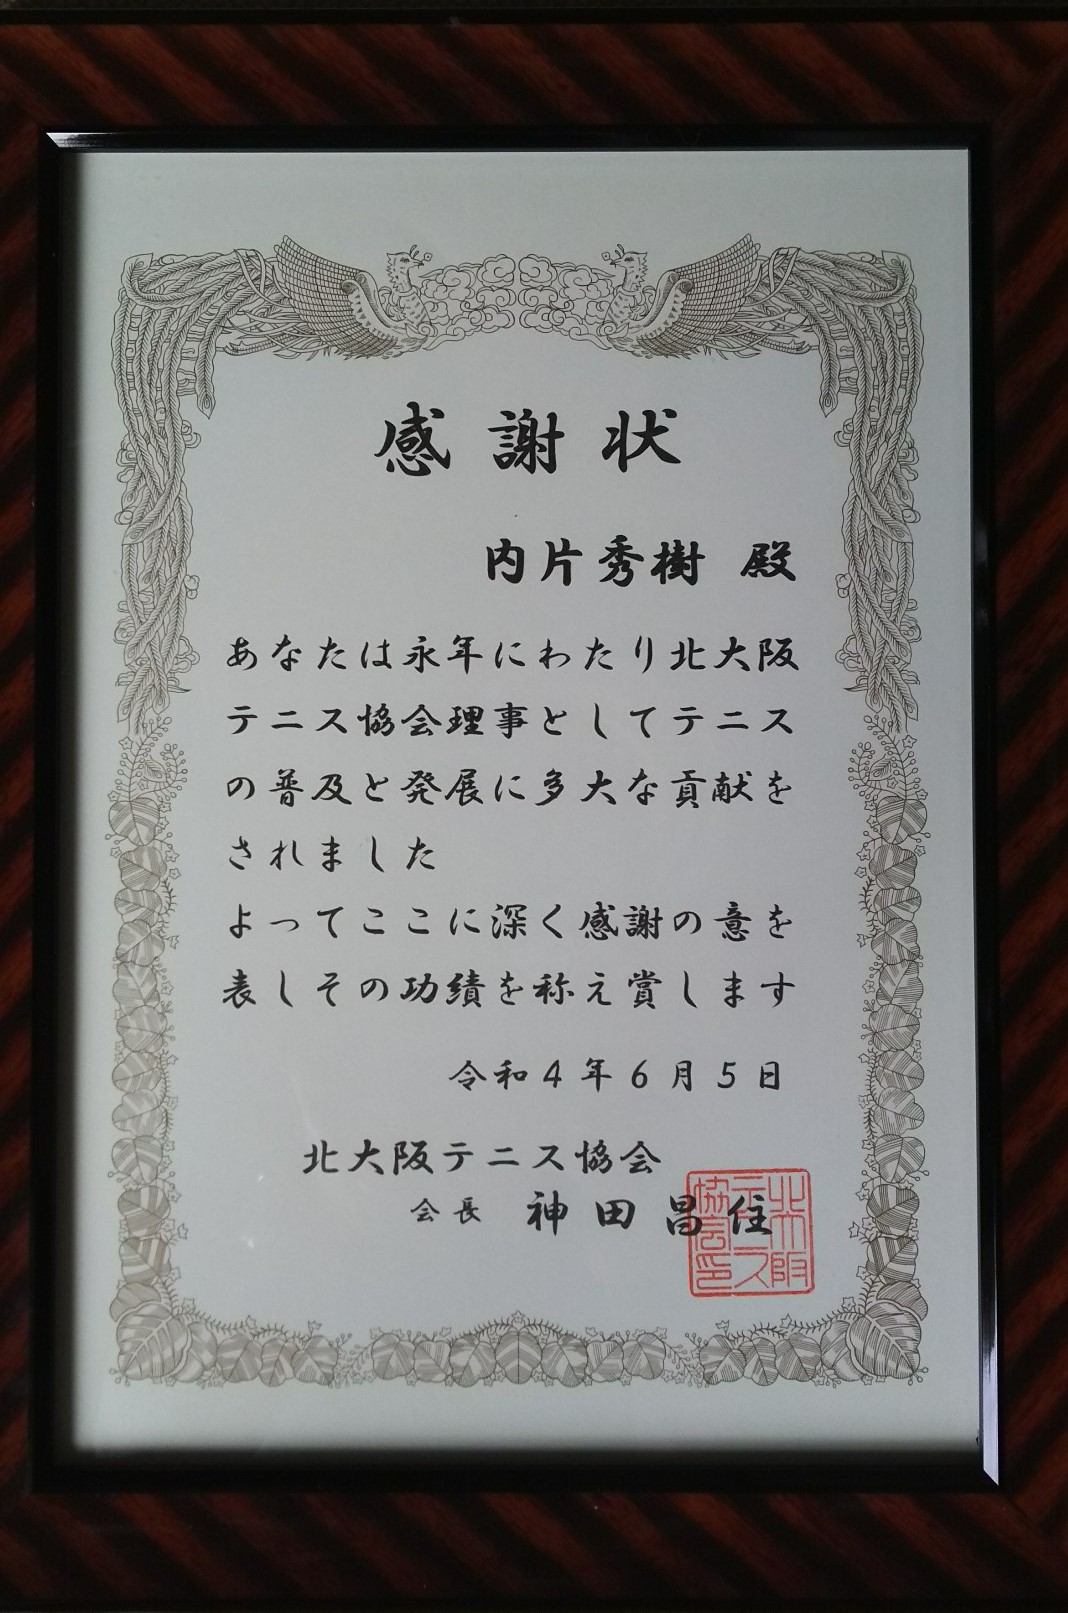 感謝状
内片秀樹 殿
あなたは永年にわたり北大阪
テニス協会理事としてテニス
の普及と発展に多大な貢献を
されました
よってここに深く感謝の意を
表しその功績を称え賞します
令和4年6月5日
北大阪テニス協会
会長 神田昌住
北大阪
テニス
協会印